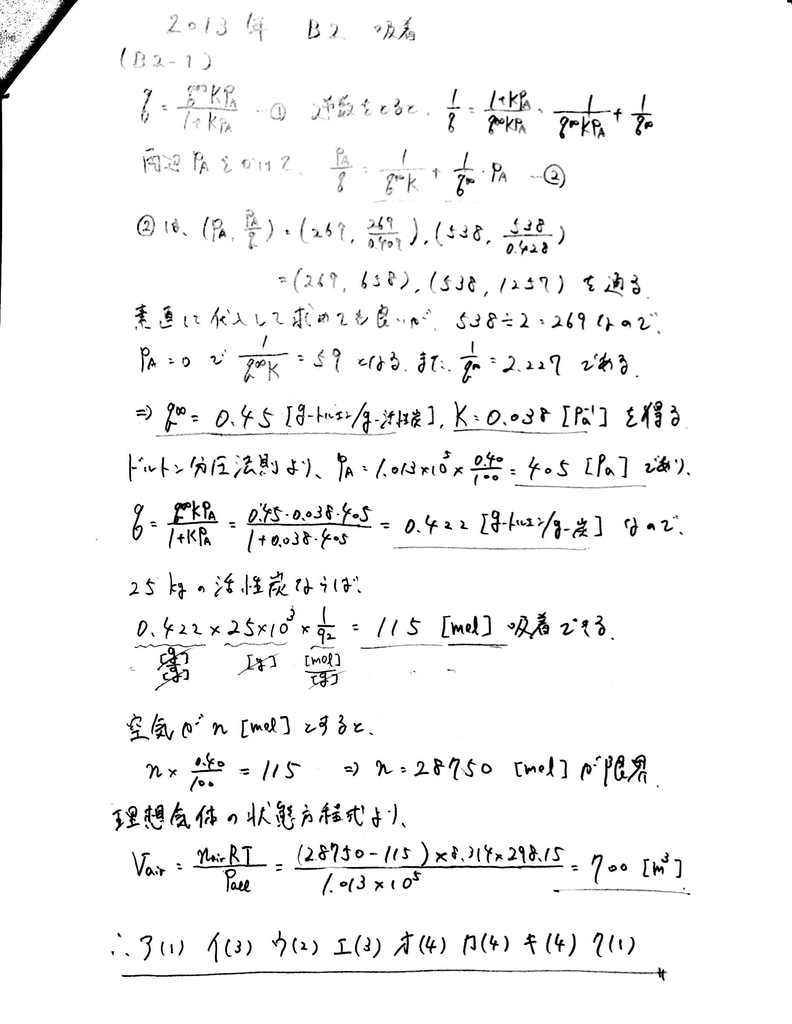 2013年 B2 吸着
(B2-1)
q = q∞KPA/1+KPA …① 逆数をとると、 1/q = 1+KPA/q∞KPA = 1/q∞KPA + 1/q∞
両辺PAをかけて、 PA/q = 1/q∞K + 1/q∞・PA …②
②は、(PA, PA/q) = (269, 269/0.409), (538, 538/0.428)
= (269, 658), (538, 1257) を通る.
素直に代入して求めても良いが、538÷2=269なので、
PA=0で 1/q∞K = 59 となる. また、1/q∞ = 2.227 である.
⇒ q∞ = 0.45 [g-トルエン/g-活性炭], K=0.038 [Pa⁻¹] を得る
ドルトン分圧法則より、PA=1.013×10⁵×0.40/100 = 405 [Pa] であり、
q = q∞KPA/1+KPA = 0.45・0.038・405/1+0.038・405 = 0.422 [g-トルエン/g-炭] なので、
25kgの活性炭ならば、
0.422×25×10³×1/92 = 115 [mol] 吸着できる.
[g]/[g] [g] [mol]/[g]
空気が n [mol] とすると、
n×0.40/100 = 115 ⇒ n=28750 [mol] が限界.
理想気体の状態方程式より、
Vair = nairRT/Pall = (28750-115)×8.314×298.15/1.013×10⁵ = 700 [m³]
∴ ア(1) イ(3) ウ(2) エ(3) オ(4) カ(4) キ(4) ク(1)